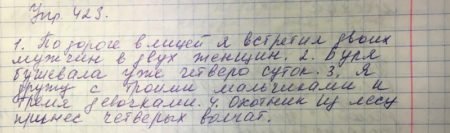 Упр. 423.
1. По дороге в лицей я встретил двоих
мужчин и двух женщин. 2. Буря
бушевала уже четверо суток. 3. Я
дружу с троими мальчиками и
тремя девочками. 4. Охотник из лесу
принес четверых волчат.